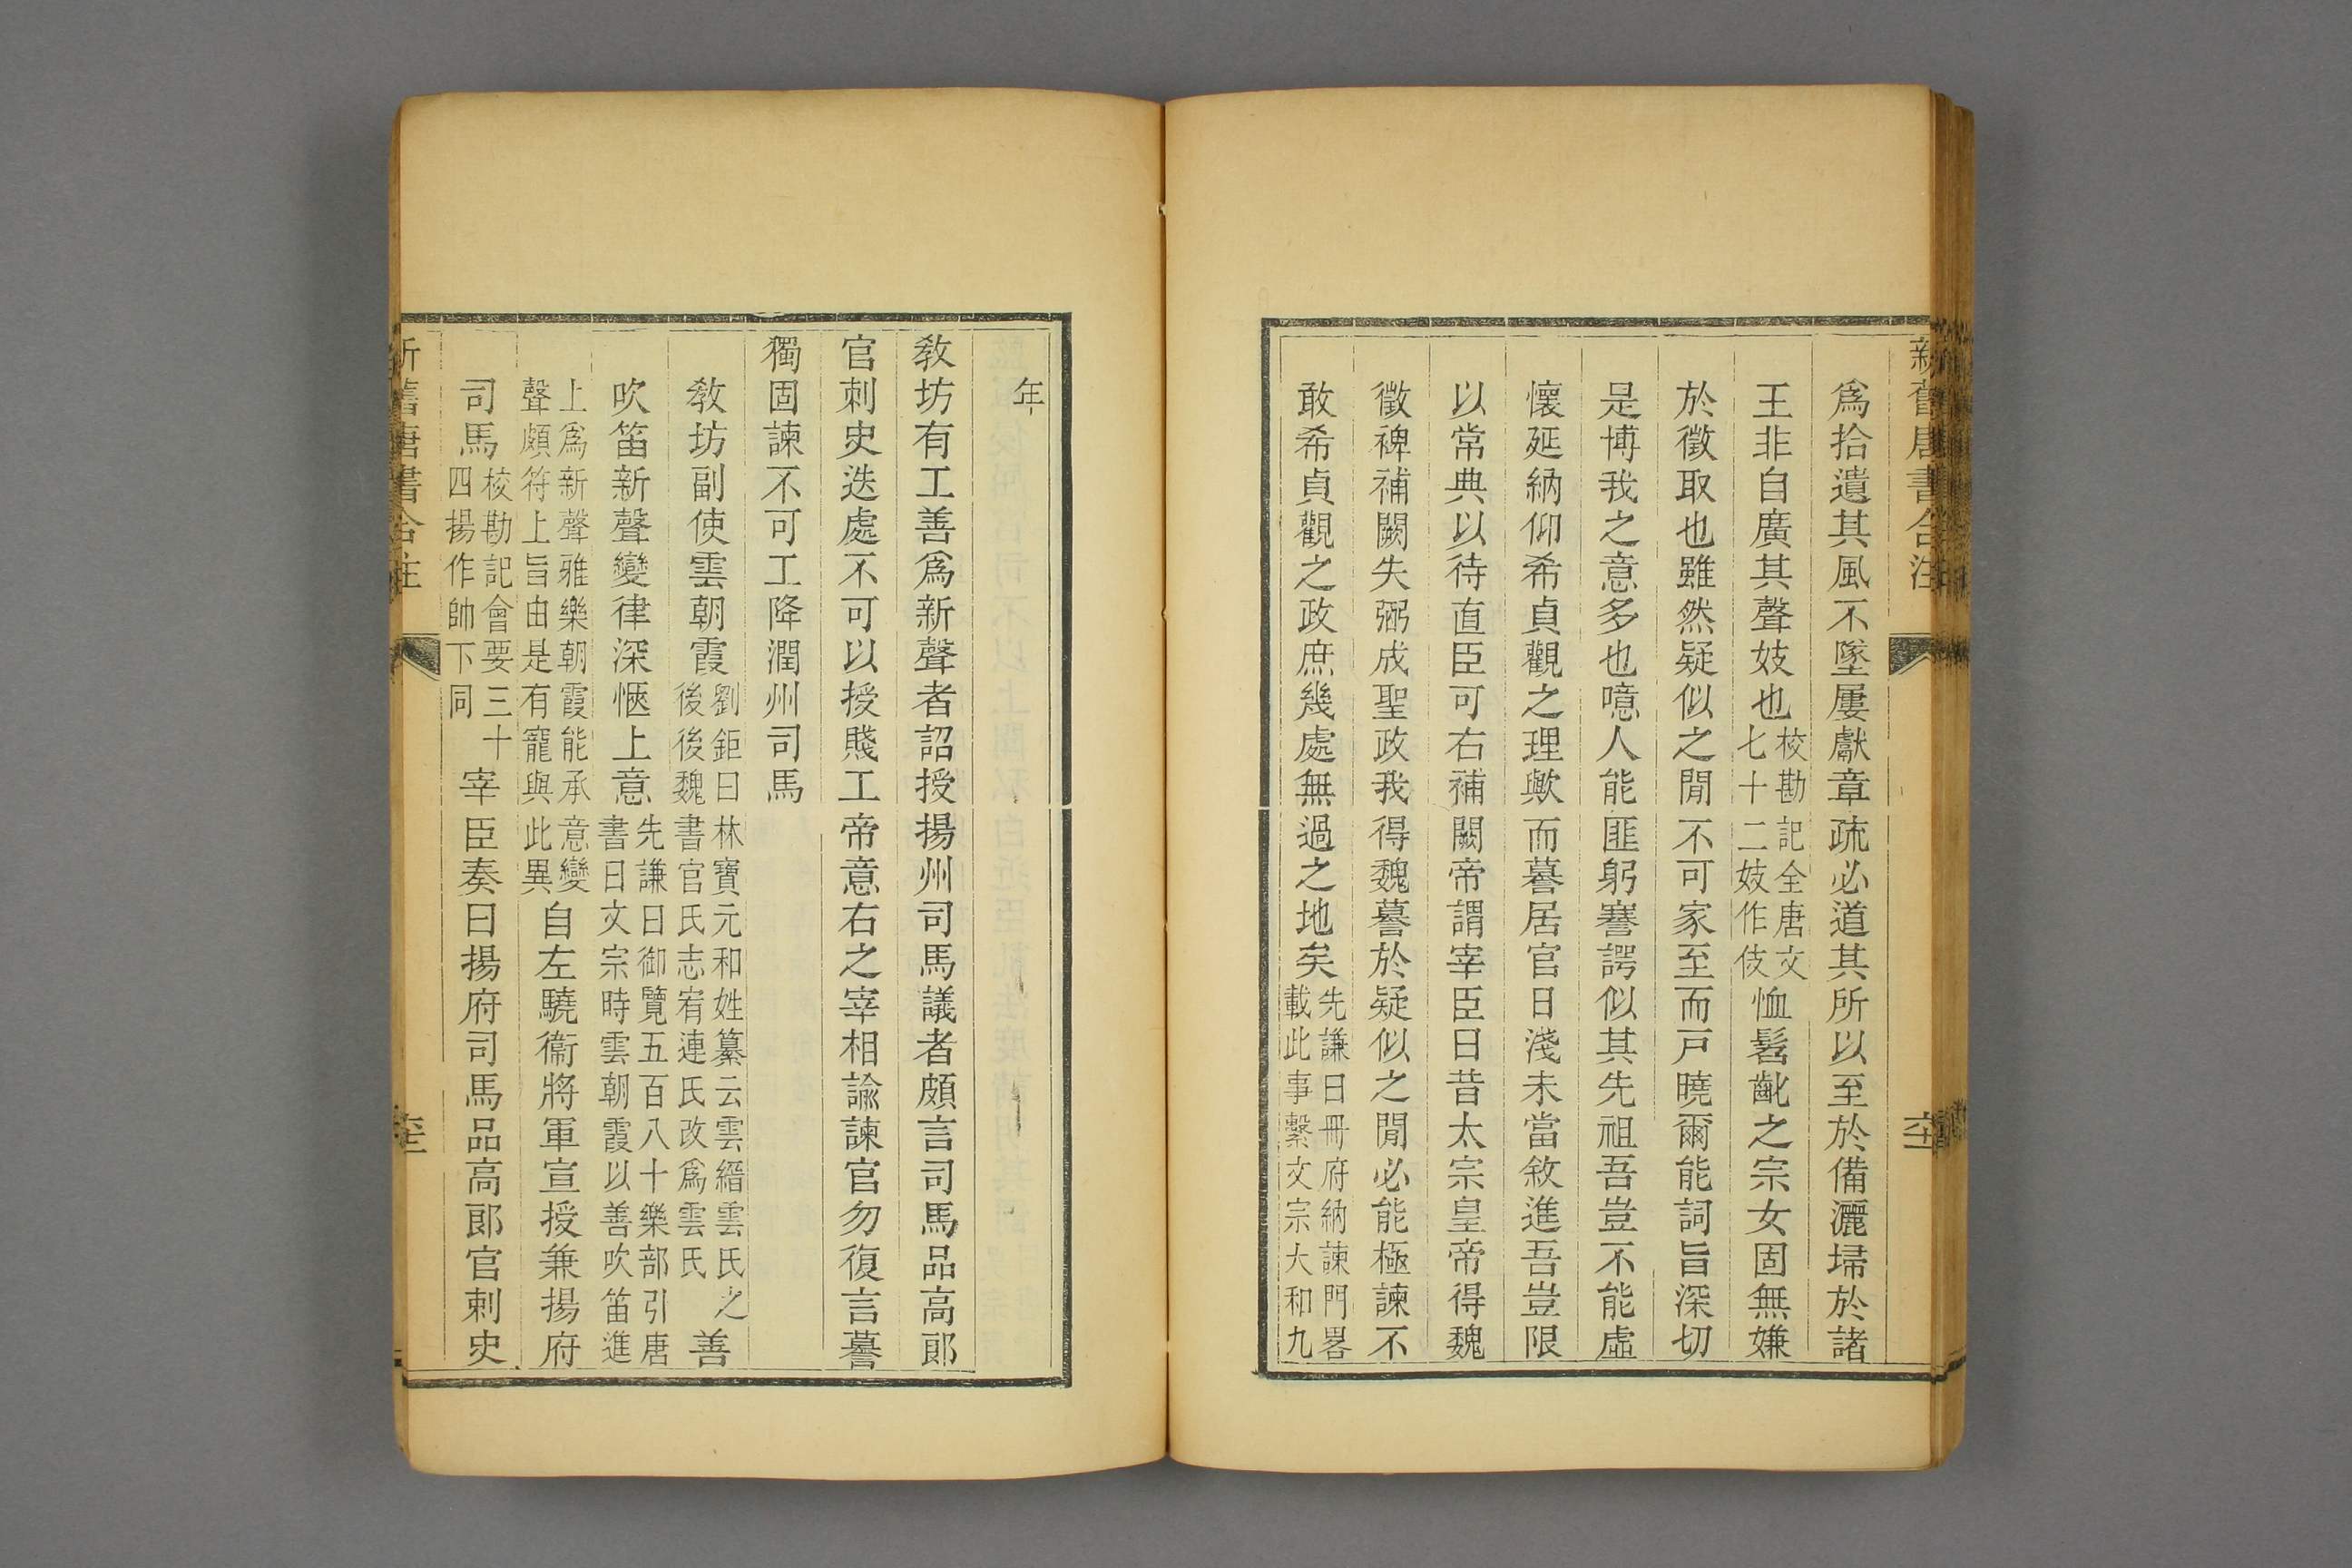 新舊唐書合注
為拾遺其風不墜屢獻章疏必道其所以至於備灑埽於諸
王非自廣其聲妓也校勘記全唐文七十二妓作伎恤髫齔之宗女固無嫌
於徵取也雖然疑似之閒不可家至而戸曉爾能詞旨深切
是博我之意多也噫人能匪躬謇諤似其先祖吾豈不能虛
懷延納仰希貞觀之理歟而謩居官日淺未當敘進吾豈限
以常典以待直臣可右補闕帝謂宰臣曰昔太宗皇帝得魏
徵裨補闕失弼成聖政我得魏謩於疑似之閒必能極諫不
敢希貞觀之政庶幾處無過之地矣先謙曰冊府納諫門畧載此事繫文宗大和九
年
教坊有工善為新聲者詔授揚州司馬議者頗言司馬品高郎
官刺史迭處不可以授賤工帝意右之宰相諭諫官勿復言謩
獨固諫不可工降潤州司馬
教坊副使雲朝霞劉鉅曰林寶元和姓纂云雲縉雲氏之後後魏書官氏志宥連氏改為雲氏善
吹笛新聲變律深愜上意先謙曰御覽五百八十樂部引唐書曰文宗時雲朝霞以善吹笛進
上為新聲雅樂朝霞能承意變聲頗符上旨由是有寵與此異自左驍衞將軍宣授兼揚府
司馬校勘記會要三十四揚作帥下同宰臣奏曰揚府司馬品高郎官刺史
新舊唐書合注